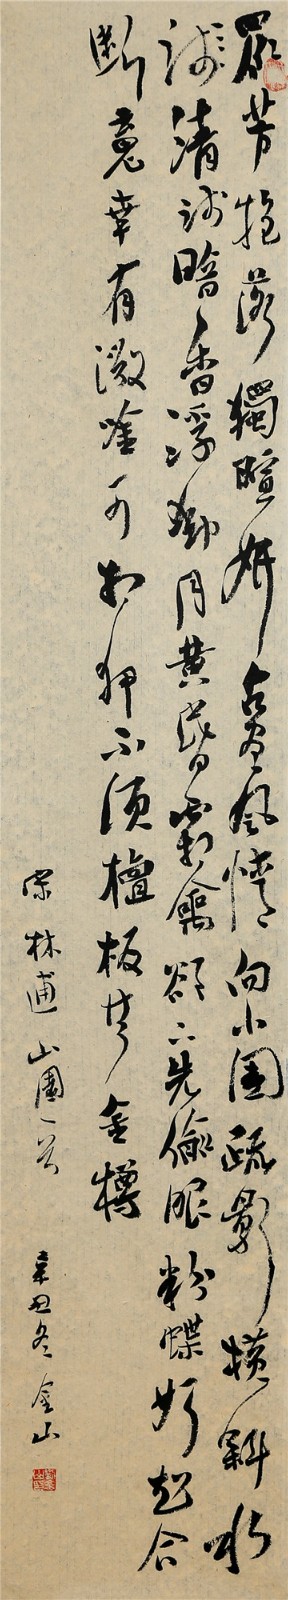 眾芳摇落獨暄妍占盡風情向小園疏影橫斜水
淺清淺暗香浮動月黃昏霜禽欲下先偷眼粉蝶如知合
斷魂幸有微吟可相狎不須檀板共金樽
宋林逋山園一首 辛丑冬金山